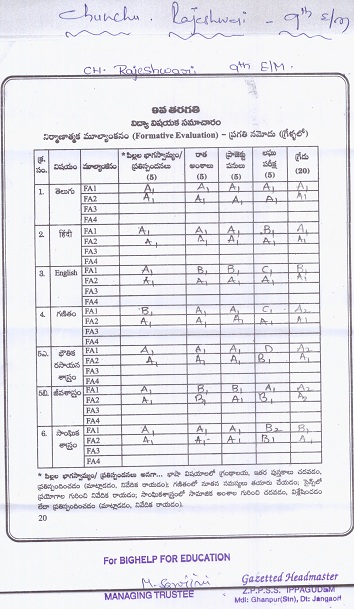 Chunchu. Rajeshwari - 9th E/M
CH. Rajeshwari 9th E/M.
9వ తరగతి
విద్యా విషయక సమాచారం
నిర్మాణాత్మక మూల్యాంకనం (Formative Evaluation) – ప్రగతి నమోదు (గ్రేళ్ళలో)
క్ర. సం. విషయం మూల్యాంకనం * పిల్లల భాగస్వామ్యం/ ప్రతిస్పందనలు (5) రాత అంశాలు (5) ప్రాజెక్టు పనులు (5) లఘు పరీక్ష (5) గ్రేడు (20)
1. తెలుగు FA1 A1 A1 A1 A1 A1
FA2 A1 A1 A1 A1 A1
FA3
FA4
2. हिंदी FA1 A1 A1 A1 B1 A1
FA2 A1 A1 A1 A1 A1
FA3
FA4
3. English FA1 A1 B1 B1 C1 B1
FA2 A1 A1 A1 A1 A1
FA3
FA4
4. గణితం FA1 B1 A1 A1 C1 A2
FA2 A1 A1 A1 A1 A1
FA3
FA4
5ఎ. భౌతిక రసాయన శాస్త్రం FA1 A1 A1 A1 D A2
FA2 A1 A1 A1 B1 A1
FA3
FA4
5బి. జీవశాస్త్రం FA1 A1 B1 B1 A1 A2
FA2 A1 B1 A1 B1 A2
FA3
FA4
6. సాంఘిక శాస్త్రం FA1 A1 A1 A1 B2 B1
FA2 A1 A1 A1 B1 A1
FA3
FA4
* పిల్లల భాగస్వామ్యం/ ప్రతిస్పందనలు అనగా... భాషా విషయాలలో గ్రంథాలయ, ఇతర పుస్తకాలు చదవడం,
ప్రతిస్పందించడం (మాట్లాడడం, నివేదిక రాయడం); గణితంలో నూతన సమస్యలు తయారు చేయడం; సైన్స్‌లో
ప్రయోగాల గురించి నివేదిక రాయడం; సాంఘికశాస్త్రంలో సామాజిక అంశాల గురించి చదవడం, విశ్లేషించడం
లేదా ప్రతిస్పందించడం (మాట్లాడడం, నివేదిక రాయడం);
20
For BIGHELP FOR EDUCATION
M. Sarojini
MANAGING TRUSTEE
Gazetted Headmaster
Z.P.P.S.S. IPPAGUDEM
Mdl: Ghanpur(Stn), Dt: Jangaon